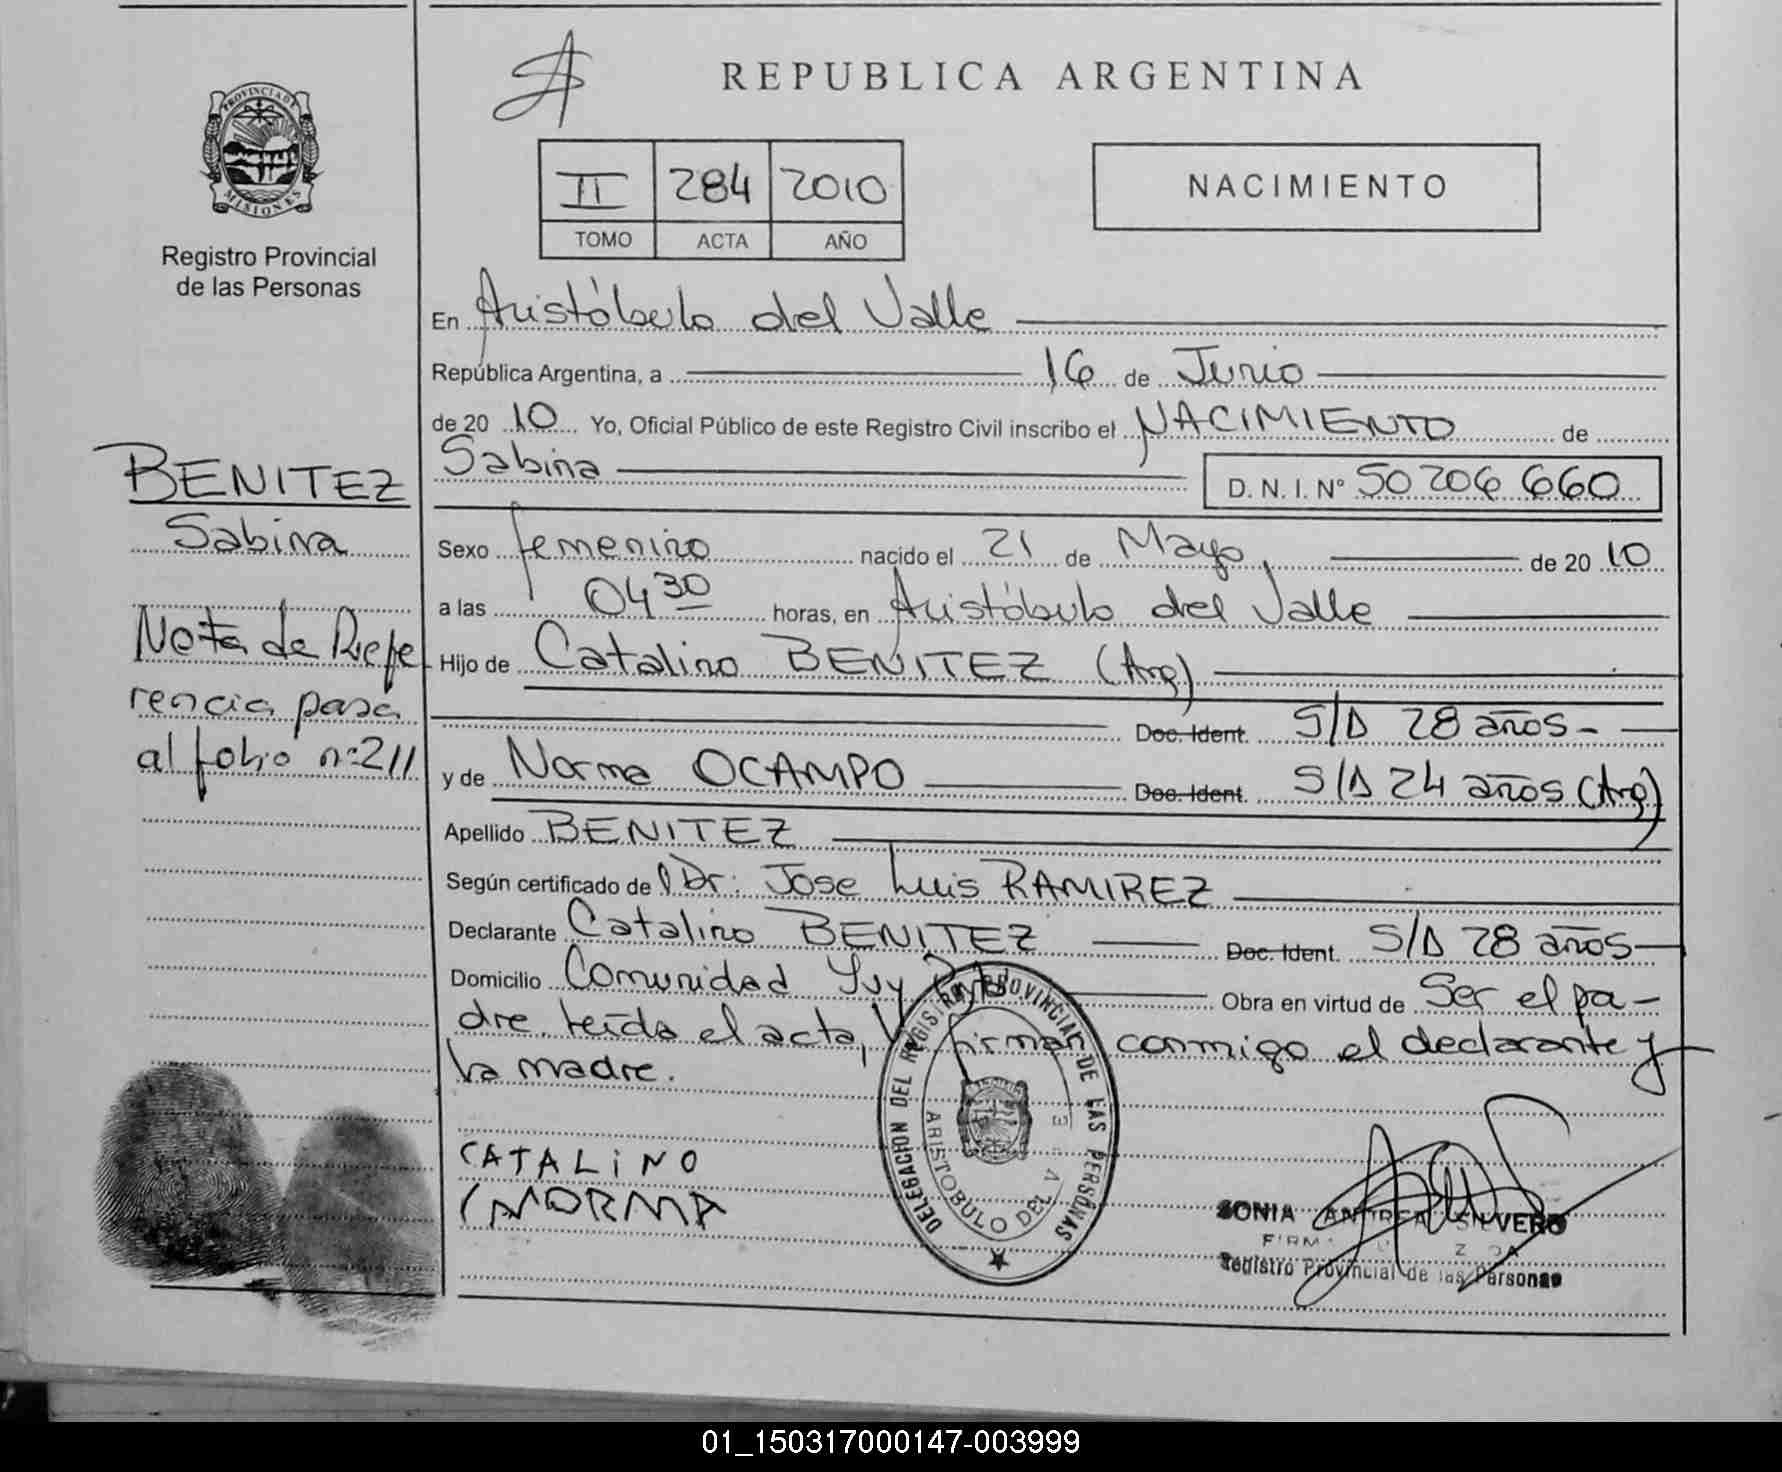 REPUBLICA ARGENTINA
PROVINCIA DE
MISIONES
Registro Provincial
de las Personas
II 284 2010
TOMO ACTA AÑO
NACIMIENTO
En Aristóbulo del Valle
República Argentina, a 16 de Junio
de 20 10 Yo, Oficial Público de este Registro Civil inscribo el NACIMIENTO de
Sabina D. N. I. N° 50 206 660
BENITEZ
Sabina
Nota de Refe
rencia pasa
al folio n:211
Sexo femenino nacido el 21 de Mayo de 20 10
a las 04 30 horas, en Aristóbulo del Valle
Hijo de Catalino BENITEZ (Arg)
Doc. Ident. S/D 28 años-
y de Norma OCAMPO Doc. Ident. S/D 24 años (Arg)
Apellido BENITEZ
Según certificado de Dr. Jose Luis RAMIREZ
Declarante Catalino BENITEZ Doc. Ident. S/D 28 años
Domicilio Comunidad Yvy Obra en virtud de Ser el pa-
dre. Leída el acta, firman conmigo el declarante y
la madre.
CATALiNO
NORMA
DELEGACION DEL REGISTRO PROVINCIAL DE LAS PERSONAS
ARISTOBULO DEL V
SONIA ANDREA SILVERO
Registro Provincial de las Personas
01_150317000147-003999